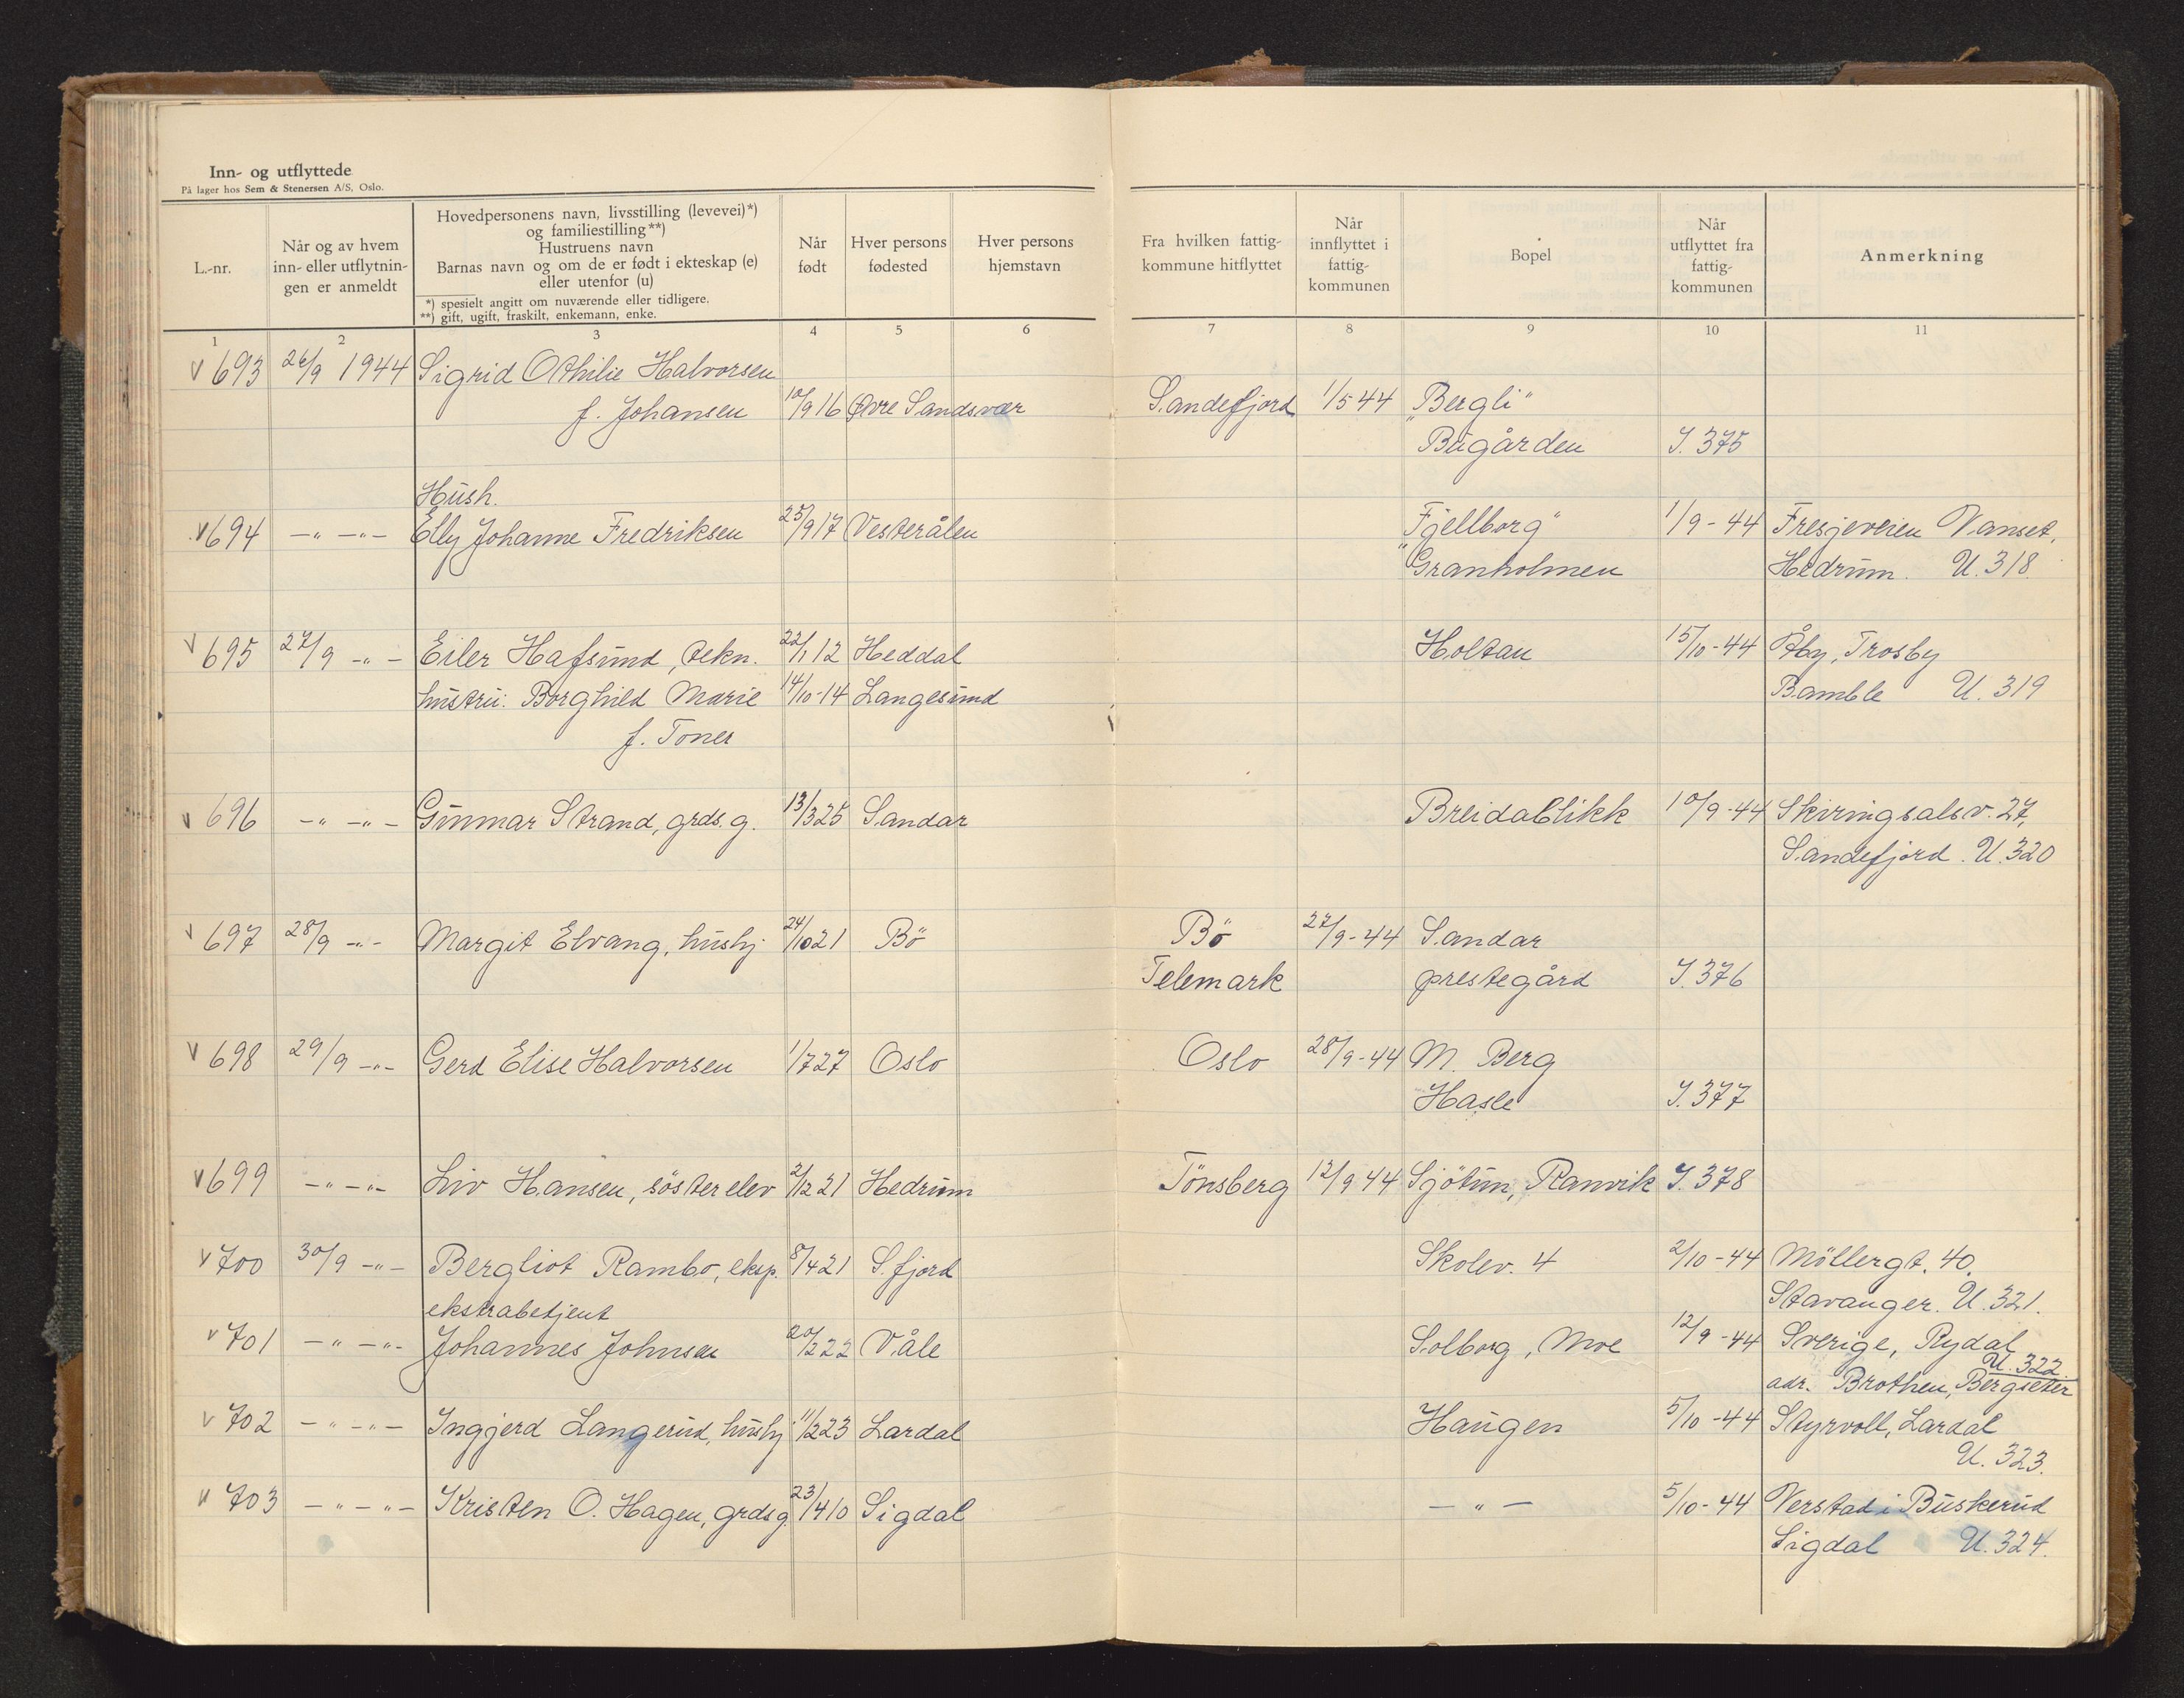 Inn- og utflyttede
På lager hos Sem & Stenersen A/S, Oslo.
L.-nr.
Når og av hvem
inn- eller utflytnin-
gen er anmeldt
Hovedpersonens navn, livsstilling (levevei)*)
og familiestilling**)
Hustruens navn
Barnas navn og om de er født i ekteskap (e)
eller utenfor (u)
*) spesielt angitt om nuværende eller tidligere.
**) gift, ugift, fraskilt, enkemann, enke.
Når
født
Hver persons
fødested
Hver persons
hjemstavn
Fra hvilken fattig-
kommune hitflyttet
Når
innflyttet i
fattig-
kommunen
Bopel
Når
utflyttet fra
fattig-
kommunen
Anmerkning
1 2 3 4 5 6 7 8 9 10 11
v 693 26/9 1944 Sigrid Othilie Halvorsen
f. Johansen 10/9 16 Øvre Sandsvær Sandefjord 1/5 44 "Bergli"
Bugården I. 375
Hush.
v 694 -"- -"- Elly Johanne Fredriksen 25/9 17 Vesterålen "Fjellborg" 1/9-44 Fresjeveien Vanset,
Granholmen Hedrum. U. 318.
v 695 27/9 -"- Eiler Hafsund, tekn. 22/1 12 Heddal Holtan 15/10-44 Åby, Trosby
hustru: Borghild Marie 14/10-14 Langesund Bamble U. 319
f. Toner
v 696 -"- -"- Gunnar Strand, grds. g. 13/3 25 Sandar Breidablikk 10/9-44 Skiringsalsv. 27,
Sandefjord. U. 320
v 697 28/9 -"- Margit Elvang, hushj. 24/10 21 Bö Bö 27/9-44 Sandar
Telemark prestegård I. 376
v 698 29/9 -"- Gerd Elise Halvorsen 1/7 27 Oslo Oslo 28/9-44 M. Berg
Hasle I. 377
v 699 -"- -"- Liv Hansen, søsterelev 2/12 21 Hedrum Tønsberg 12/9 44 Sjötun, Ranvik I. 378
v 700 30/9 -"- Bergliot Rambo, eksp. 8/4 21 S.fjord Skolev. 4 2/10-44 Möllergt. 40.
ekstrabetjent Stavanger. U. 321.
v 701 -"- -"- Johannes Johnsen 20/2 22 Våle Solborg, Moe 12/9-44 Sverige, Rydal
U. 322
adr. Brothen, Bergseter
v 702 -"- -"- Inggjerd Langerud, hushj. 11/2 23 Lardal Haugen 5/10-44 Styrvoll, Lardal
U. 323.
v 703 -"- -"- Kristen O. Hagen, grdsg. 23/4 10 Sigdal -"- 5/10-44 Verstad i Buskerud
Sigdal U. 324.